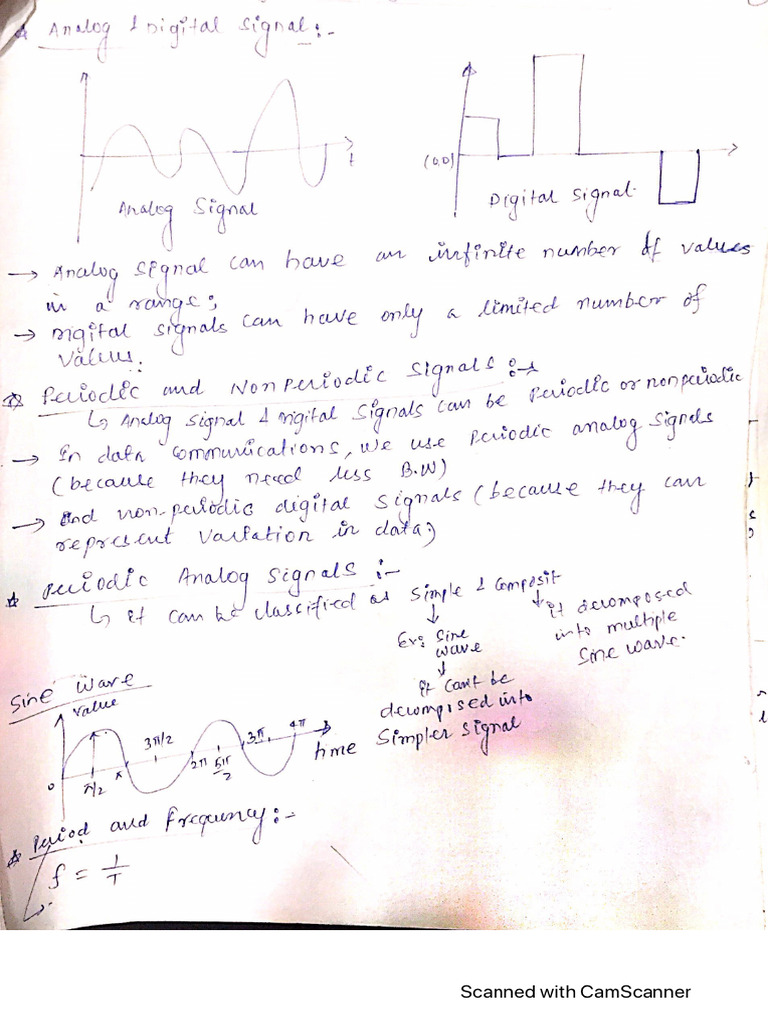 Analog & Digital Signal :-
t
(0,0)
Analog Signal
Digital Signal.
→ Analog Signal can have an infinite number of values
in a range;
→ Digital signals can have only a limited number of
values.
☆ Periodic and NonPeriodic Signals :-
↳ Analog Signal & Digital Signals can be Periodic or nonperiodic
→ In data communications, we use periodic analog signals
(because they need less B.W)
→ And non-periodic digital signals (because they can
represent variation in data)
☆ Periodic Analog Signals :-
↳ it can be classified as Simple & Composit
↓ ↓
Ex: Sine
wave
↓
it can't be
decomposed into
Simpler signal
it decomposed
into multiple
Sine wave.
Sine wave
value
0 π/2 π 3π/2 2π 5π/2 3π 4π
time
☆ Period and Frequency :-
f = 1/T
Scanned with CamScanner